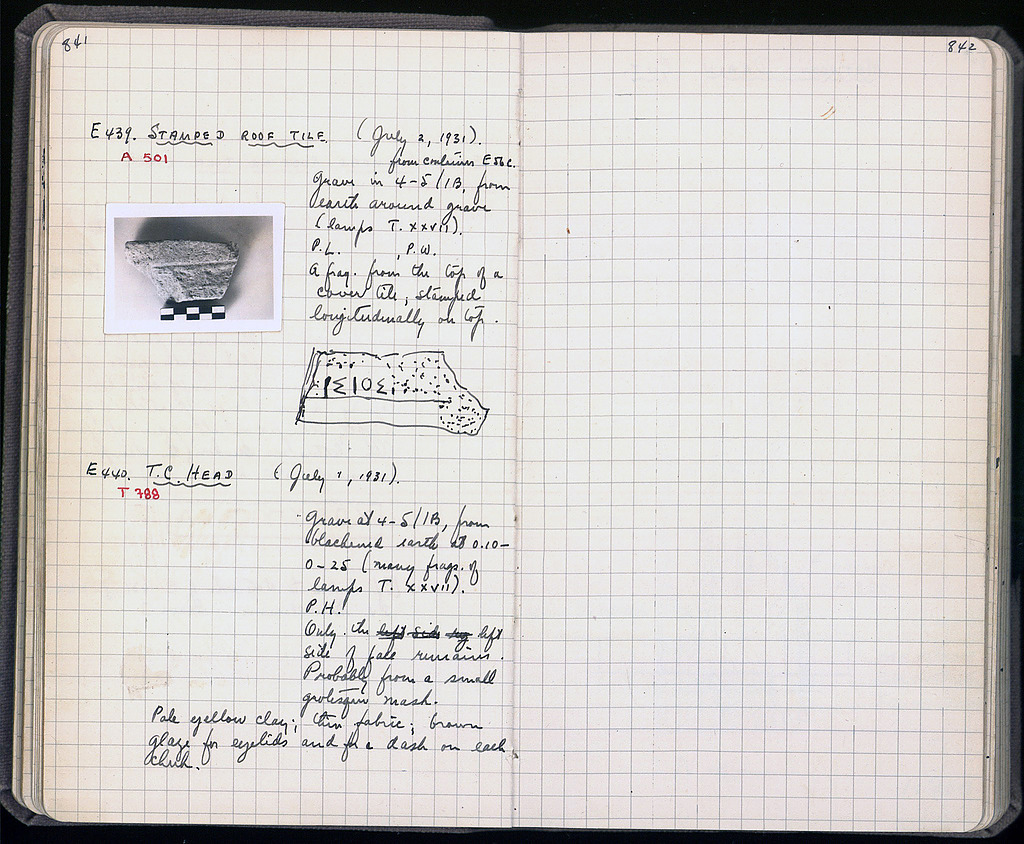 841
842
E 439. STAMPED ROOF TILE. (July 2, 1931).
A 501
from container E56c.
Grave in 4-5/IB, from
earth around grave
(lamps T. XXVII).
P.L. , P.W.
A frag. from the top of a
cover tile, stamped
longitudinally on top.
E 440. T.C. HEAD (July , 1931).
T 788
Grave at 4-5/IB, from
blackened earth at 0.10-
0-25 (many frags. of
lamps T. XXVII).
P.H.
Only the left side left
side of face remains.
Probably from a small
grotesque mask.
Pale yellow clay; thin fabric; brown
glaze for eyelids and for a dash on each
cheek.